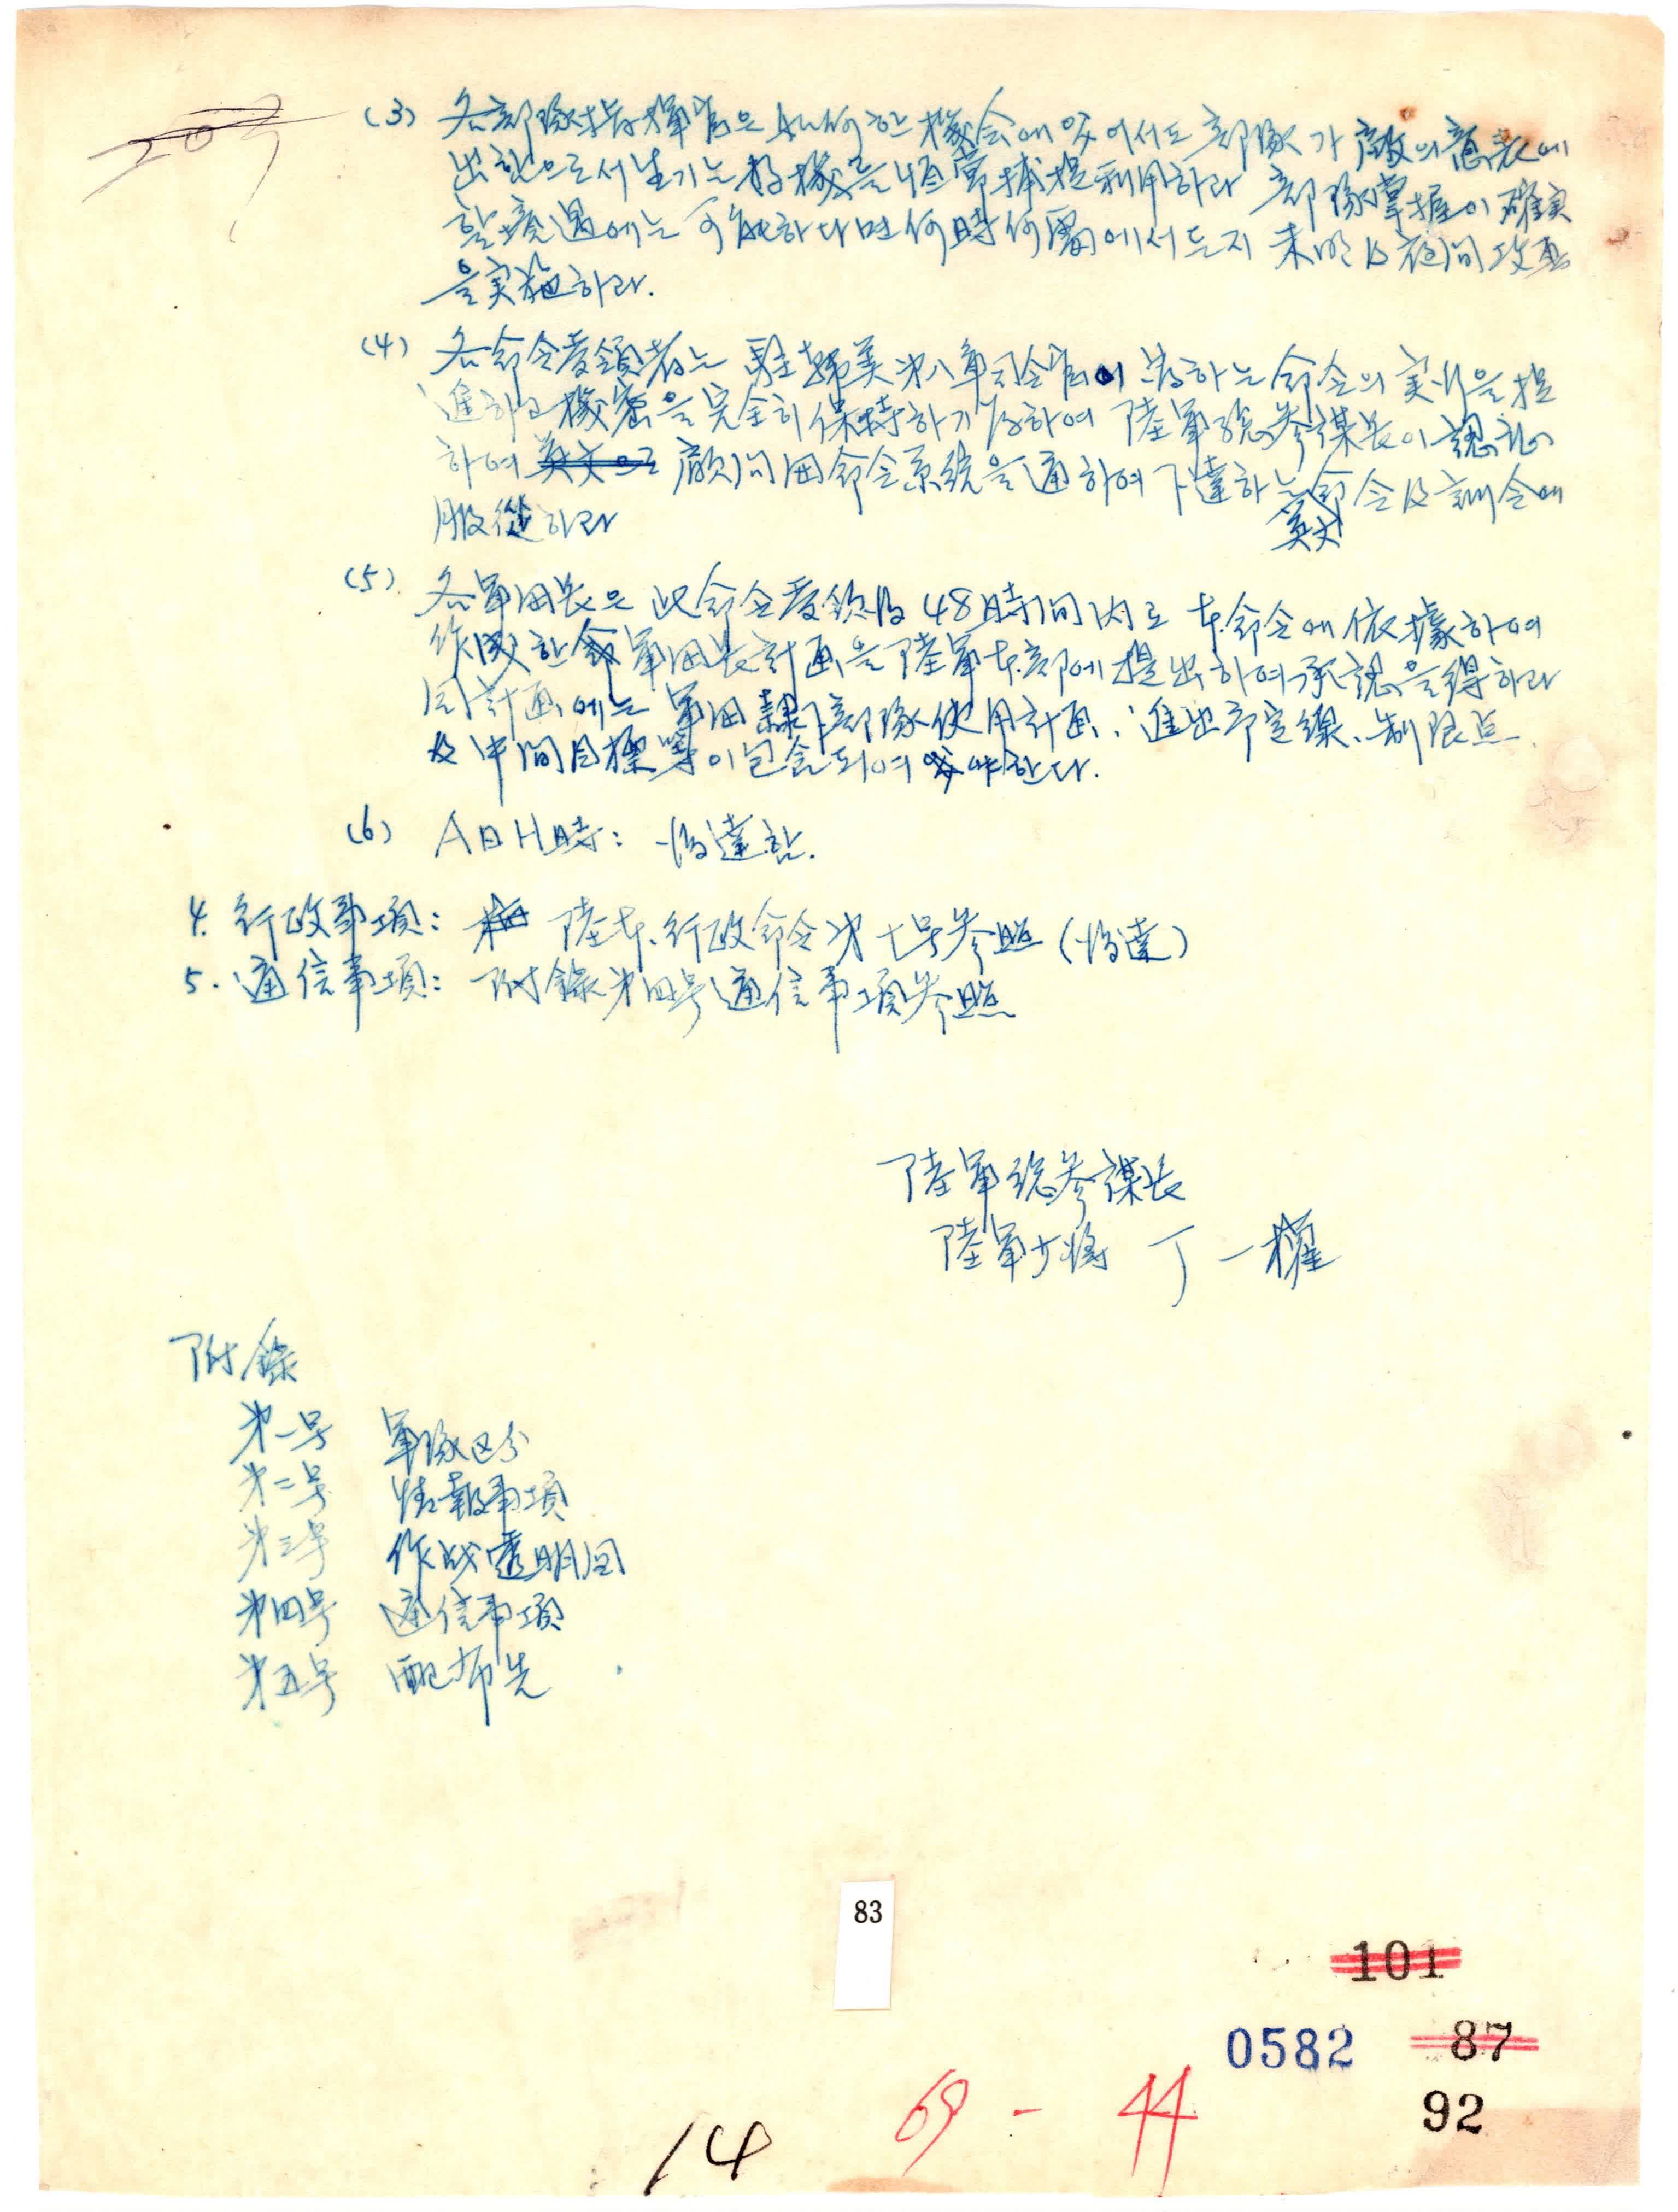 (3) 各部隊指揮官은 如何한 機会에 있어서도 部隊가 敵의 意表에
出함으로서 생기는 好機를 恒常 捕捉利用하라 部隊掌握이 確実
할 境遇에는 可能하다면 何時何處에서든지 未明 及 夜間攻擊
을 実施하라.
(4) 各命令受領者는 駐韓美第八軍司令官이 發하는 命令의 実行을 促
進하고 機密을 完全히 保持하기 爲하여 陸軍総参謀長이 認
하여 英文으로 顧問団命令系統을 通하여 下達하는 英文 命令 及 訓令에
服從하라
(5) 各軍団長은 此命令受領後 48時間內로 本命令에 依據하여
作成한 軍団長計画을 陸軍本部에 提出하여 承認을 得하라
同計画에는 軍団隷下部隊使用計画, 進出予定線, 制限点
及 中間目標等이 包含되여야 한다.
(6) A日H時: 後達함.
4. 行政事項: 陸本行政命令第七号参照 (後達)
5. 通信事項: 附錄第四号通信事項参照
陸軍総参謀長
陸軍少将 丁一權
附錄
第一号 軍隊区分
第二号 情報事項
第三号 作战透明図
第四号 通信事項
第五号 配布先
83
101
0582 87
92
69 - 44
14